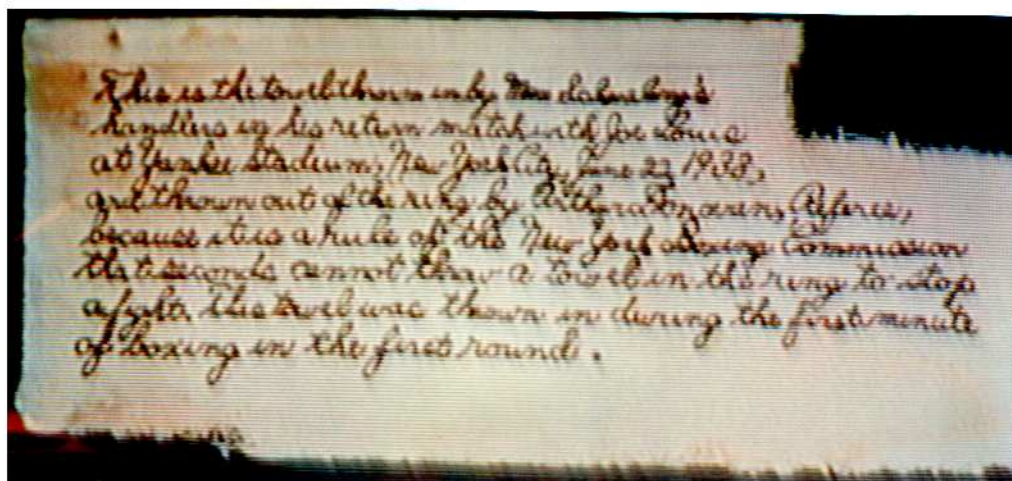 This is the towel thrown in by Max Schmeling's
handlers in his return match with Joe Louis
at Yankee Stadium, New York City, June 22, 1938,
and thrown out of the ring by Arthur Donovan, Referee,
because it is a rule of the New York Boxing Commission
that seconds cannot throw a towel in the ring to stop
a fight. This towel was thrown in during the first minute
of boxing in the first round.